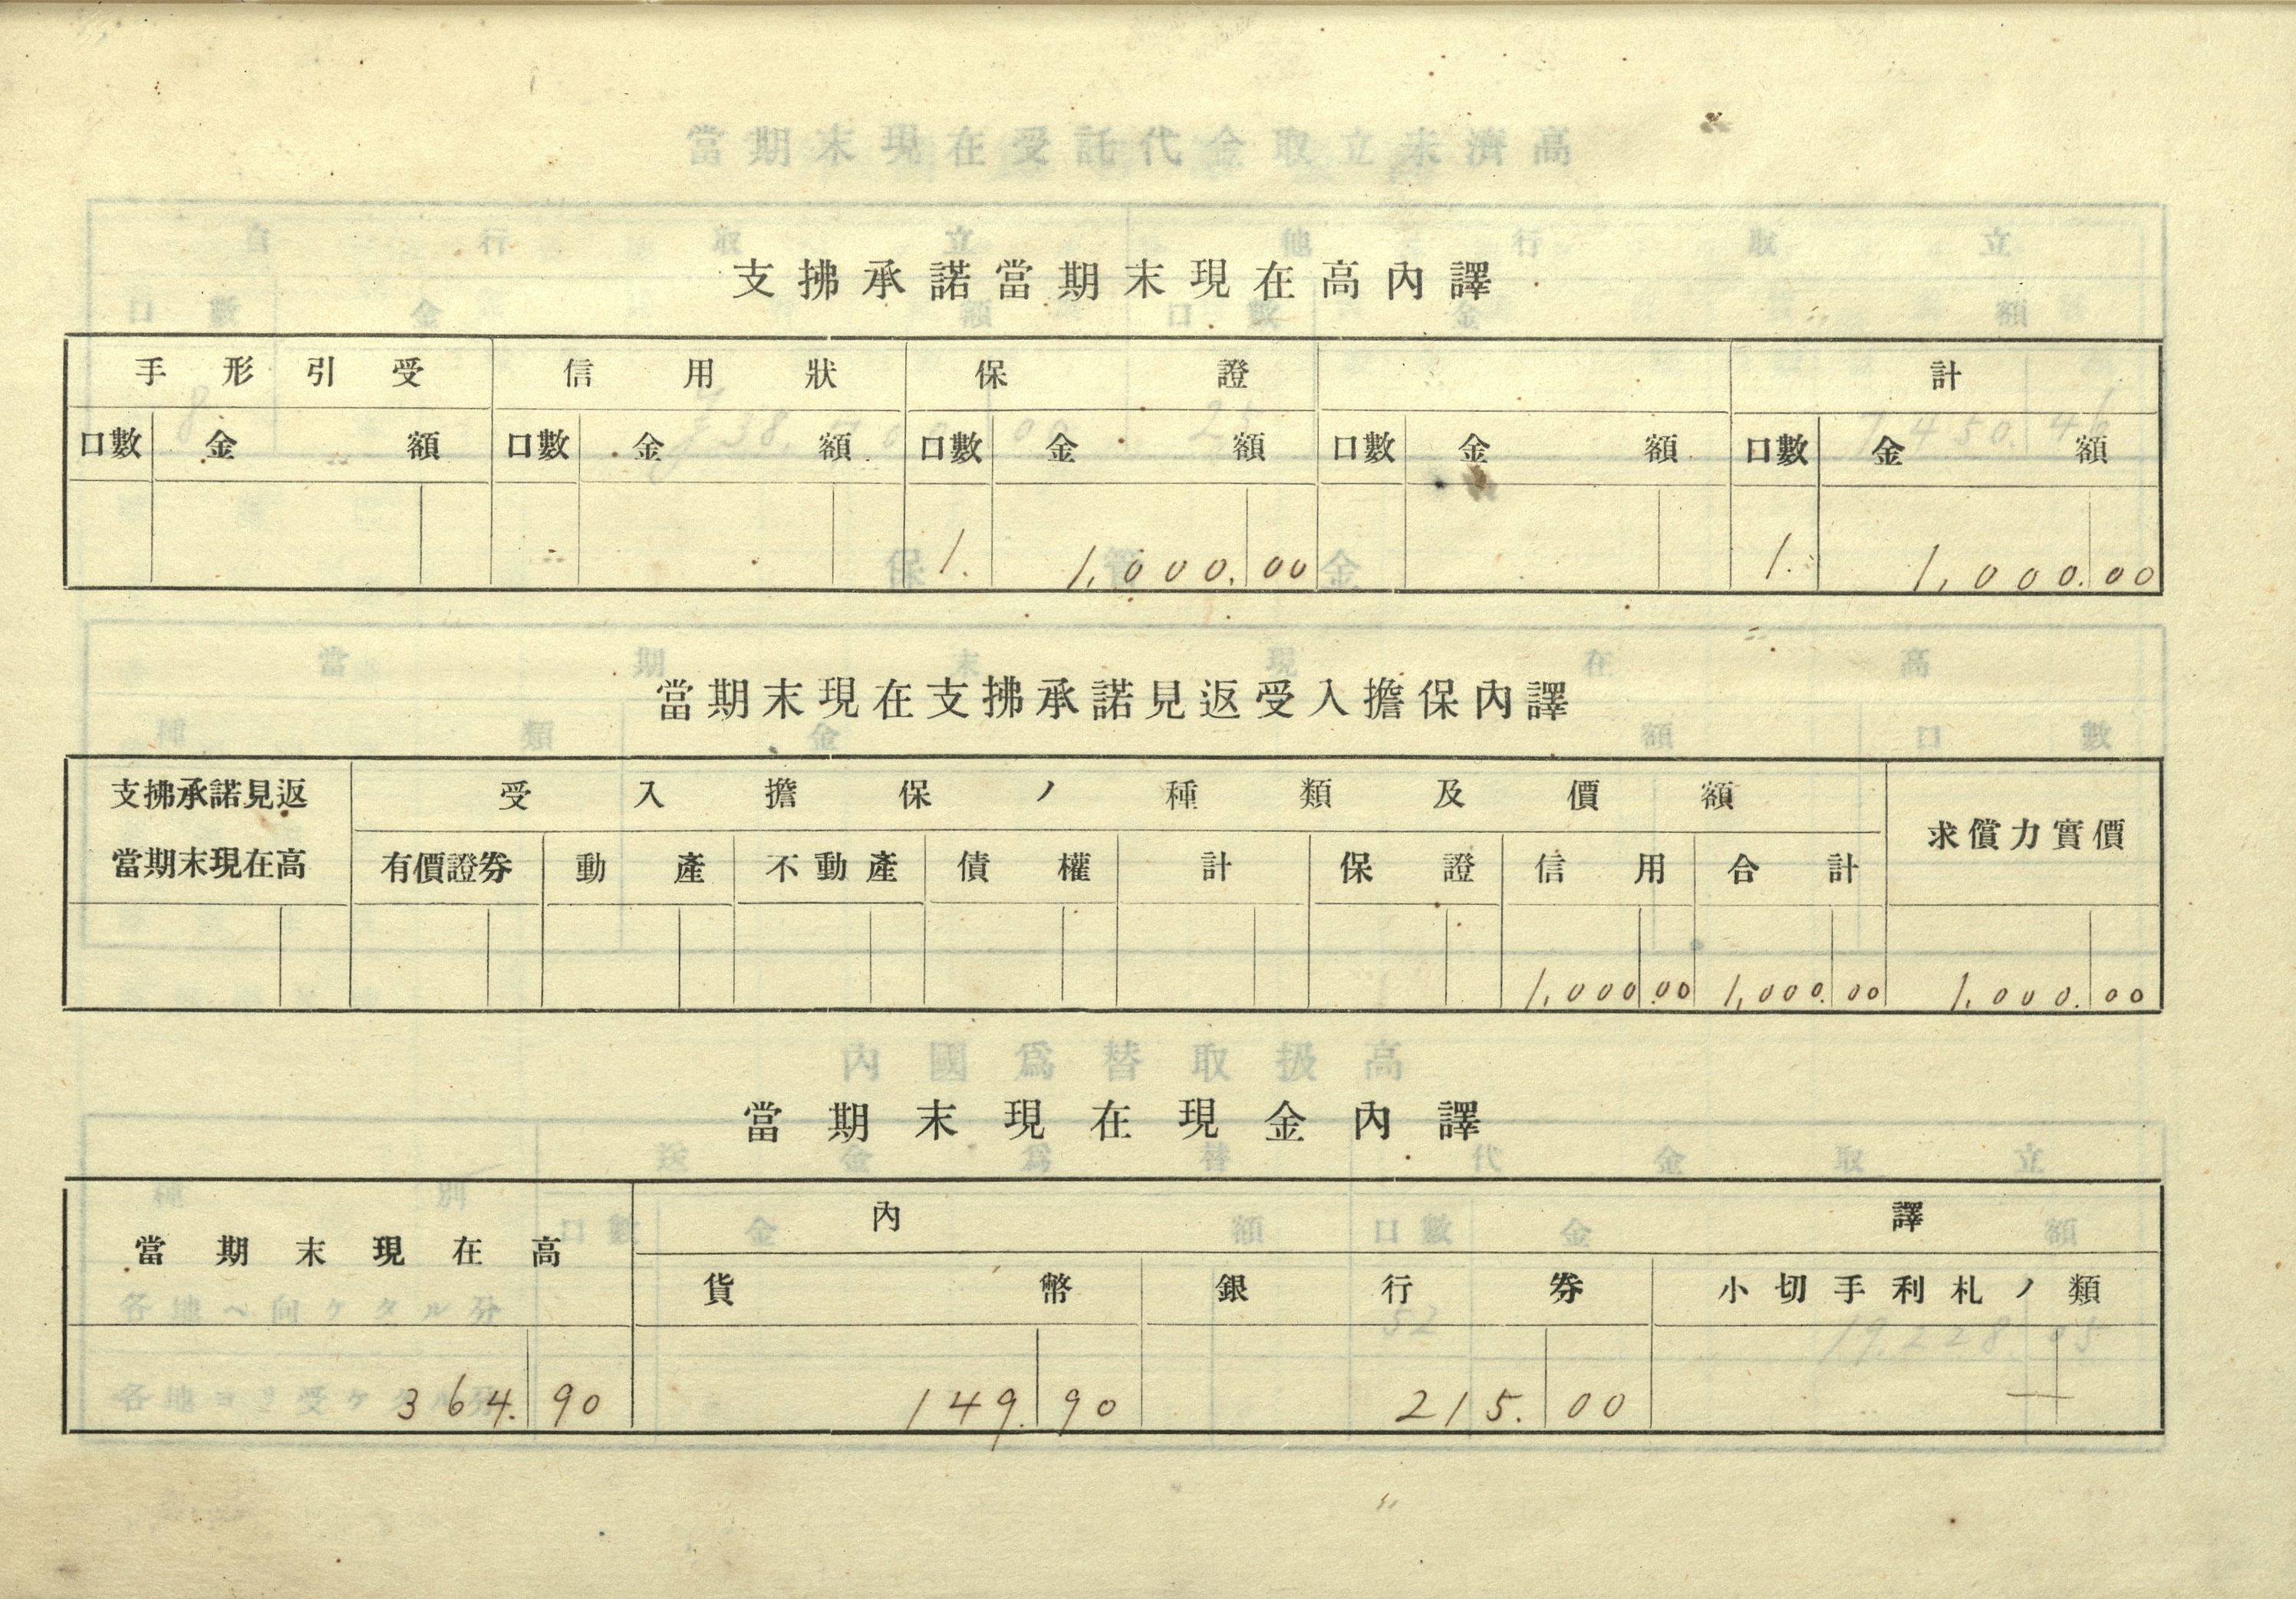 支拂承諾當期末現在高內譯
手形引受 信用狀 保證 計
口數 金額 口數 金額 口數 金額 口數 金額 口數 金額
1. 1,000.00 1. 1,000.00
當期末現在支拂承諾見返受入擔保內譯
支拂承諾見返 受入擔保ノ種類及價額
當期末現在高 有價證券 動產 不動產 債權 計 保證 信用 合計 求償力實價
1,000.00 1,000.00 1,000.00
當期末現在現金內譯
當期末現在高 內譯
貨幣 銀行券 小切手利札ノ類
364.90 149.90 215.00 —